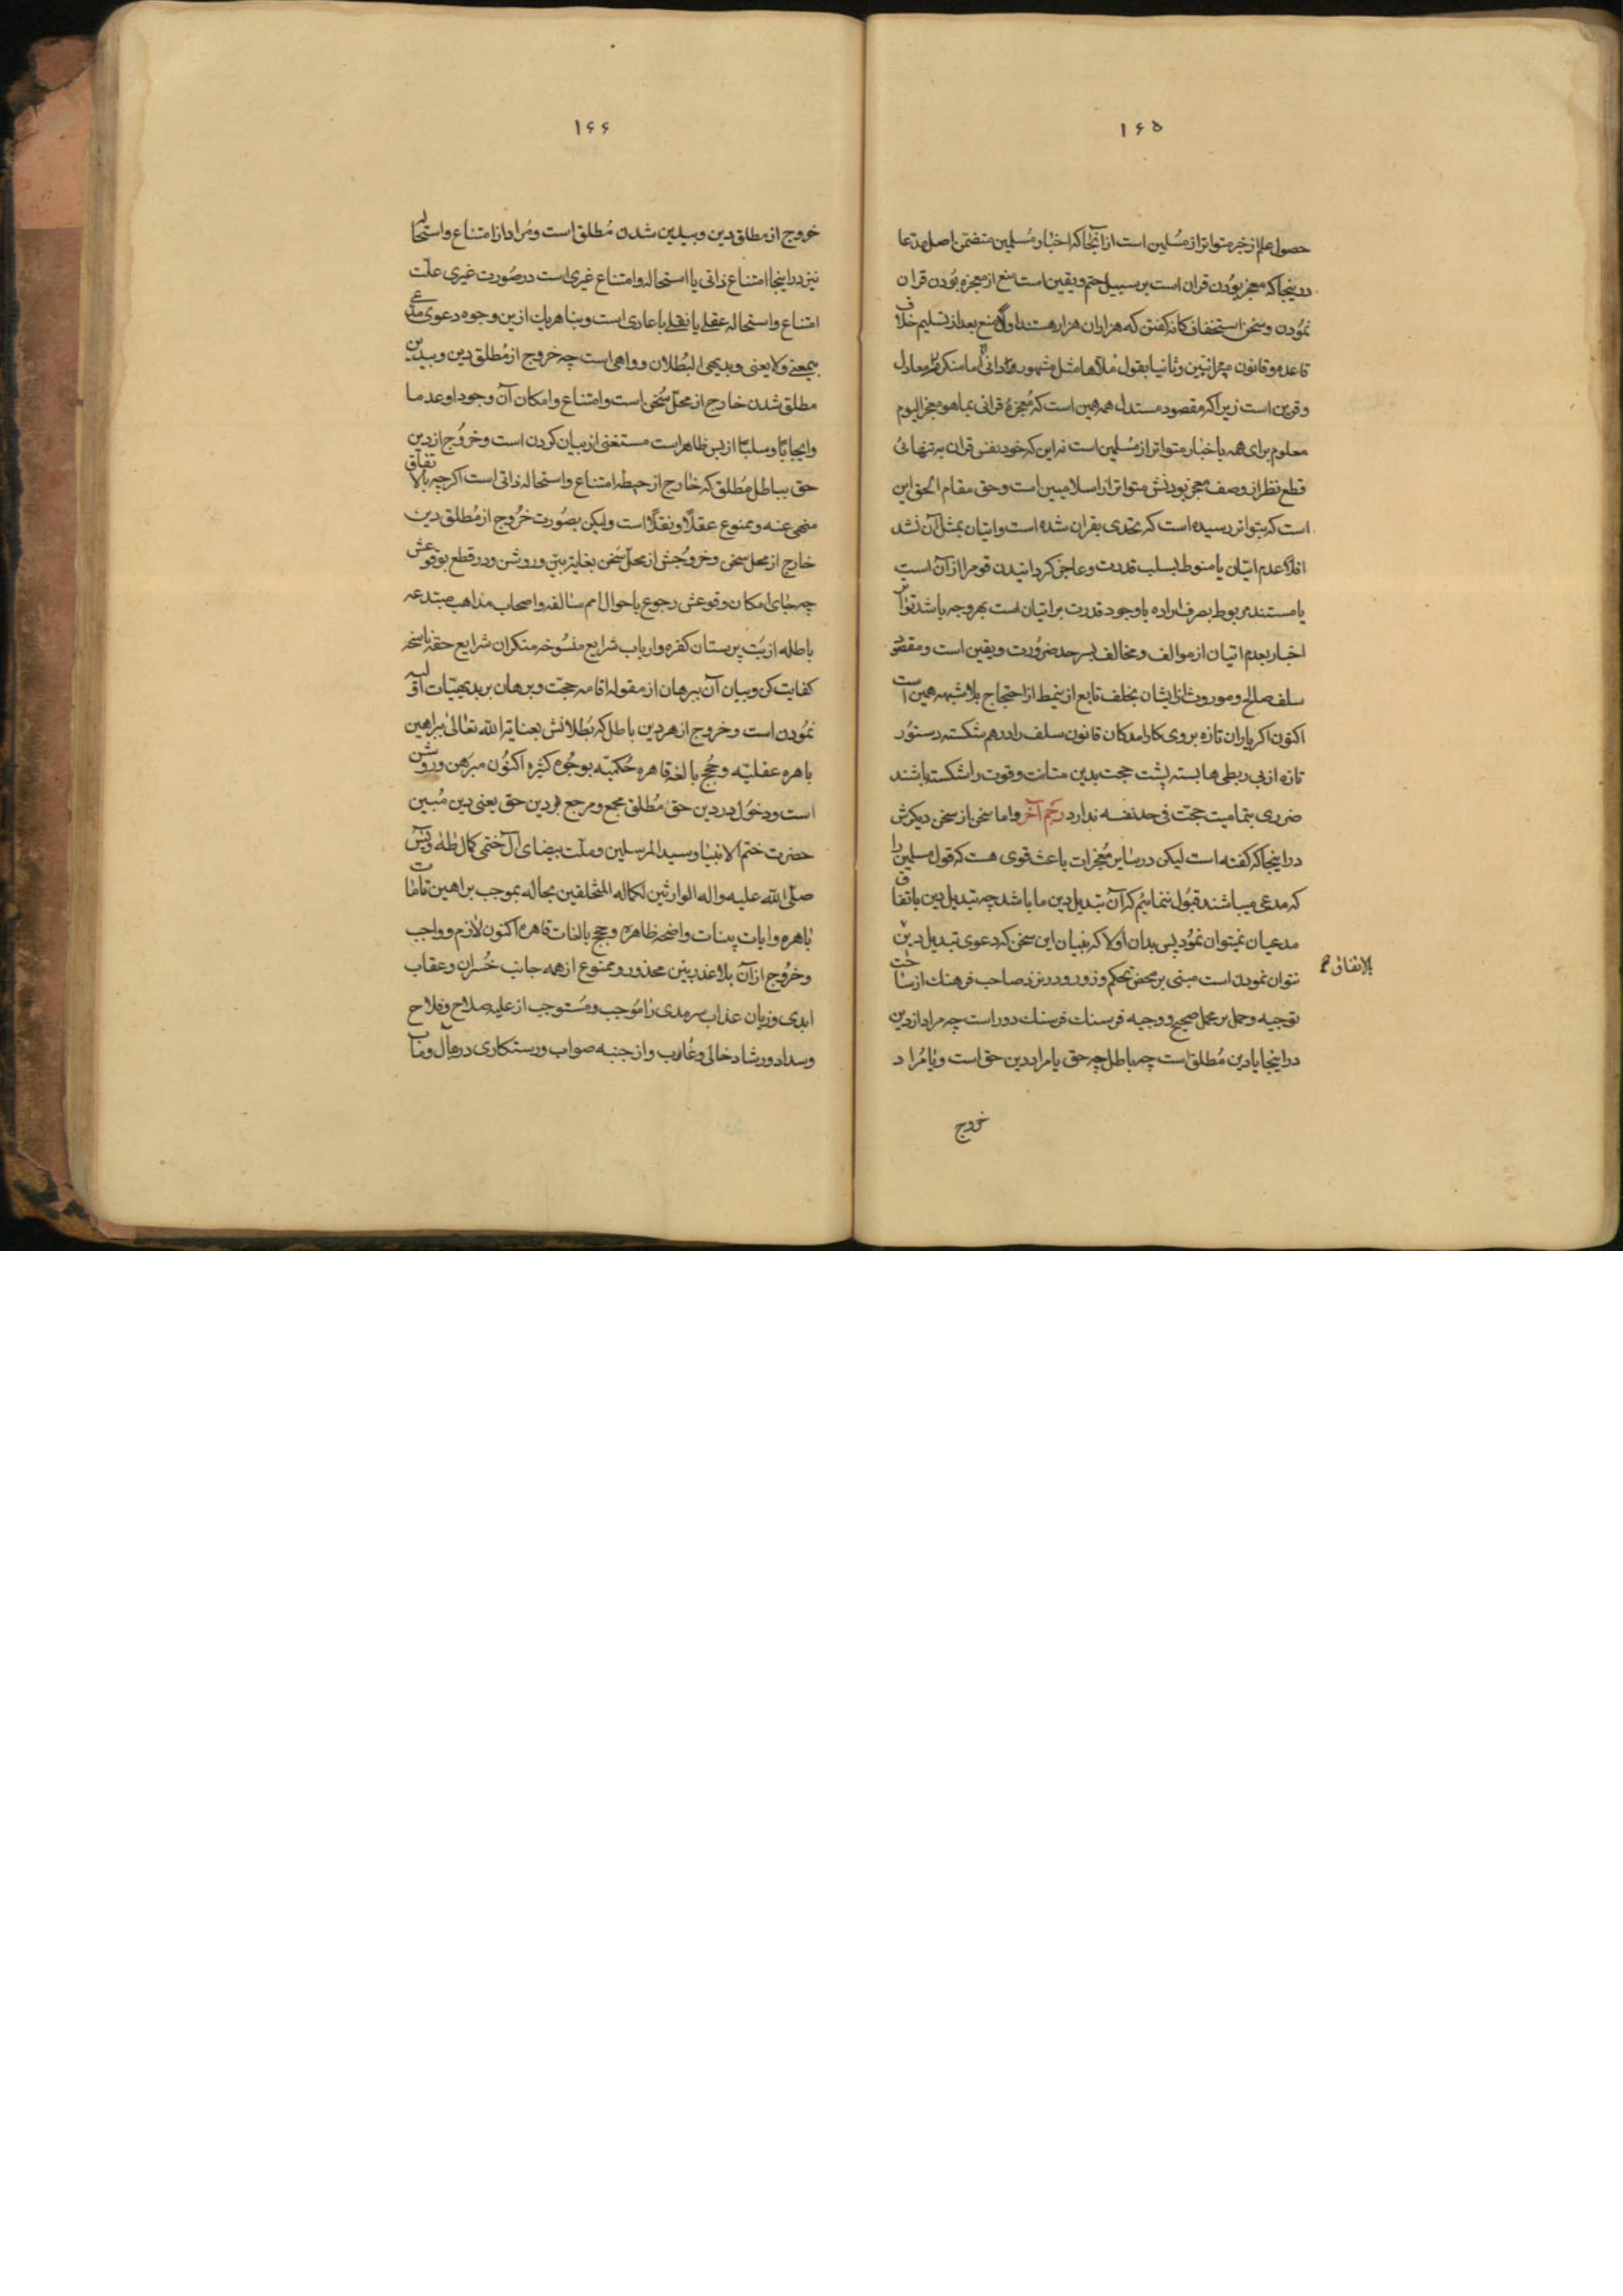 ۱۶۵
حصول علم از خبر متواتر از مسلمین است از آنجا که اخبار مسلمین متضمن اصل مدعا
در اینجا که معجز بودن قران است بر سبیل حتم و یقین است منع از معجزه بودن قران
نمودن و سخن استخفافکانه گفتن که هزاران هزار هستند اولا منع بعد از تسلیم خلاف
قاعده و قانون میزانیین و ثانیا بقول ملاها مثل مشهور دانی اما منکر معادل
و قرین است زیرا که مقصود مستدل همه همین است که معجزهٔ قرانی بما هو معجز الیوم
معلوم برای همه باخبار متواتر از مسلمین است نه این که خود نفس قران به تنهائی
قطع نظر از وصف معجز بودنش متواتر از اسلامیین است و حق مقام الحق این
است که بتواتر رسیده است که تحدی بقران شده است و اتیان بمثل آن نشد
عدم اتیان یا منوط بسلب قدرت و عاجز کردانیدن قوم را از آن است
یا مستند مربوط بصرف اراده با وجود قدرت بر اتیان است بهر وجه باشد تواتر
اخبار بعدم اتیان از موالف و مخالف بسر حد ضرورت و یقین است و مقصود
سلف صالح و موروث از ایشان بخلف تابع از نمط از احتجاج بلا شبهه همین است
اکنون اکر یاران تازه بروی کار آمدکان قانون سلف را درهم شکسته دستور
تازه از بی ربطی ها بسته پشت حجت بدین متانت و قوت را شکسته باشند
ضرری بتمامیت حجت فی حد نفسه ندارد رجم آخر و اما سخن از سخن دیکرش
در اینجا که گفته است لیکن در سایر معجزات باعث قوی هست که قول مسلمین را
که مدعی میباشند قبول ننمائیم که آن تبدیل دین ما باشد چه تبدیل دین باتفاق
مدعیان نمیتوان نمود پس بدان اولا که بنیان این سخن که دعوی تبدیل دین
بالاتفاق
نتوان نمودن است مبنی بر محض تحکم و زور و در نزد صاحب فرهنك از ساحت
توجیه و حمل بر محمل صحیح و وجیه فرسنك فرسنك دور است چه مراد از دین
در اینجا یا دین مطلق است چه باطل چه حق یا مراد دین حق است و یا مراد
خروج
۱۶۶
خروج از مطلق دین و بیدین شدن مطلق است و مراد از امتناع و استحاله
نیز در اینجا امتناع ذاتی یا استحاله و امتناع غیری است در صورت غیری علت
امتناع و استحاله عقلی یا نقلی یا عادی است و بنا هر یك ازین وجوه دعوی مدعی
بیمعنی و لا یعنی و بدیهی البطلان و واهی است چه خروج از مطلق دین و بیدین
مطلق شدن خارج از محل سخن است و امتناع و امکان آن وجودا و عدما
و ایجابا و سلبا از بس ظاهر است مستغنی از بیان کردن است و خروج از دین
حق بباطل مطلق که خارج از حیطه امتناع و استحاله ذاتی است اکر چه بالاتفاق
منهی عنه و ممنوع عقلا و نقلا است ولیکن بصورت خروج از مطلق دین
خارج از محل سخن و خروجش از محل سخن بغایت بین و روشن و در قطع بوقوعش
چه جای امکان وقوعش رجوع باحوال امم سالفه و اصحاب مذاهب مبتدعه
باطله از بت پرستان کفره و ارباب شرایع منسوخه منکران شرایع حقه ناسخه
کفایت کن و بیان آن ببرهان از مقوله اقامه حجت و برهان بر بدیهیات اولیه
نمودن است و خروج از هر دین باطل که بطلانش بعنایة الله تعالی ببراهین
باهره عقلیه و حجج بالغه قاهره حکمیه بوجوه کثیره اکنون مبرهن و روشن
است و دخول در دین حق مطلق مجمع و مرجع هر دین حق یعنی دین مبین
حضرت ختم الانبیا و سید المرسلین و ملت بیضای آل ختمی کمال طه و یس
صلی الله علیه و اله الوارثین لکماله المتخلقین بحاله بموجب براهین تامات
باهره و ایات بینات واضحه ظاهره و حجج بالغات قاهره اکنون لازم و واجب
و خروج از آن بلا عذر بین محذور و ممنوع از همه جانب خسران و عقاب
ابدی و زیان عذاب سرمدی را موجب و مستوجب از علیه صلاح و فلاح
و سداد و رشاد خالی و عازب و از جنبه صواب و رستکاری در مآل و مآب